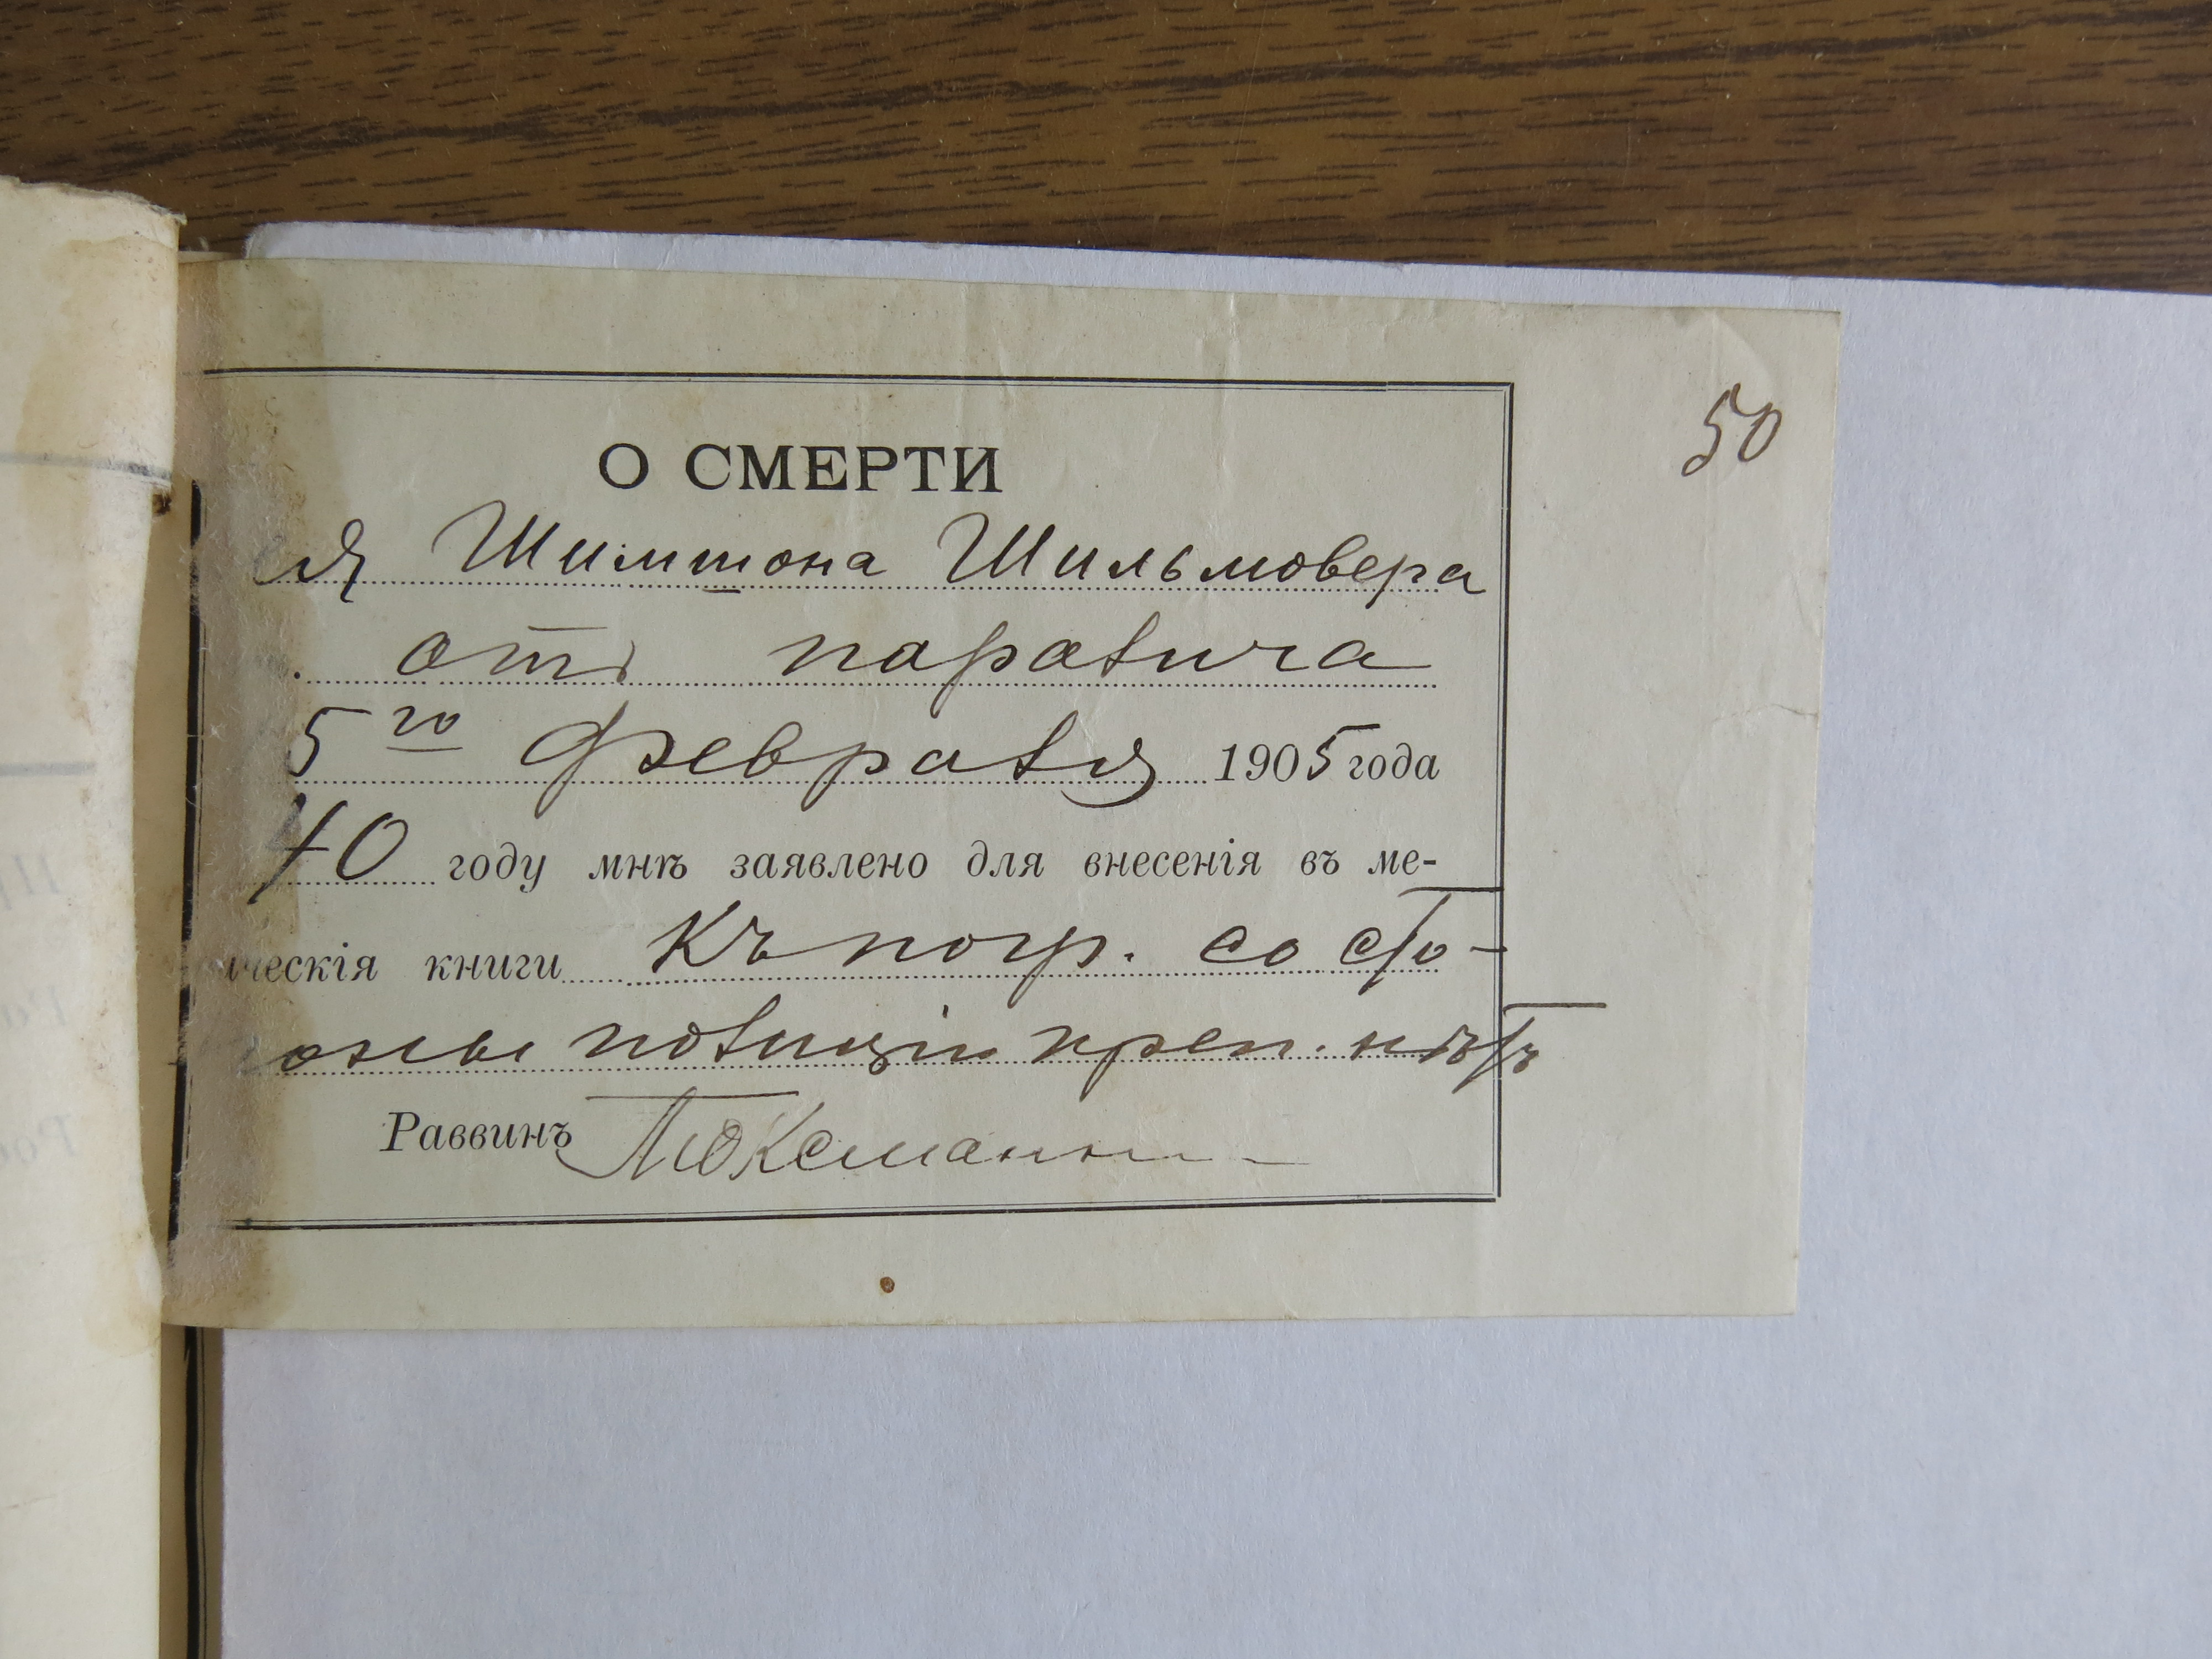 50
О СМЕРТИ
Шимшона Шильмовера
отъ паралича
5го Февраля 1905 года
70 году мнѣ заявлено для внесенія въ ме-
ческія книги Къ погр. со сто-
роны полиціи преп. нѣтъ
Раввинъ